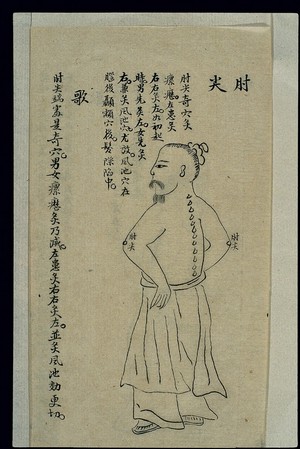 肘尖
肘尖奇穴灸
瘰癧。左患灸
右右灸左。如初起
時男先灸左女先灸
右。並灸風池穴尤效風池穴在
腦後顳顬穴後髮際陷中。
肘尖
肘尖
歌
肘尖端處是奇穴。男女瘰癧灸乃滅。左患灸右右灸左。並灸風池効更切。